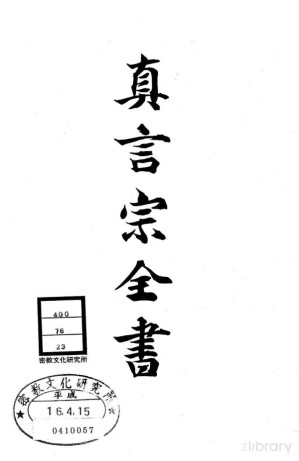 真言宗全書
400
76
23
密教文化研究所
密教文化研究所
平成
16.4.15
0410057
zlibrary